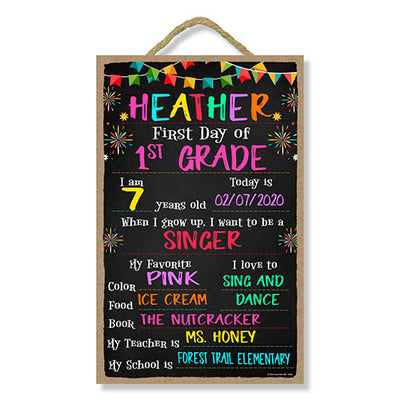 HEATHER
First Day of
1ST GRADE
I am Today is
7 years old 02/07/2020
When I grow up, I want to be a
SINGER
My Favorite I love to
Color PINK SING AND
Food ICE CREAM DANCE
Book THE NUTCRACKER
My Teacher is MS. HONEY
My School is FOREST TRAIL ELEMENTARY